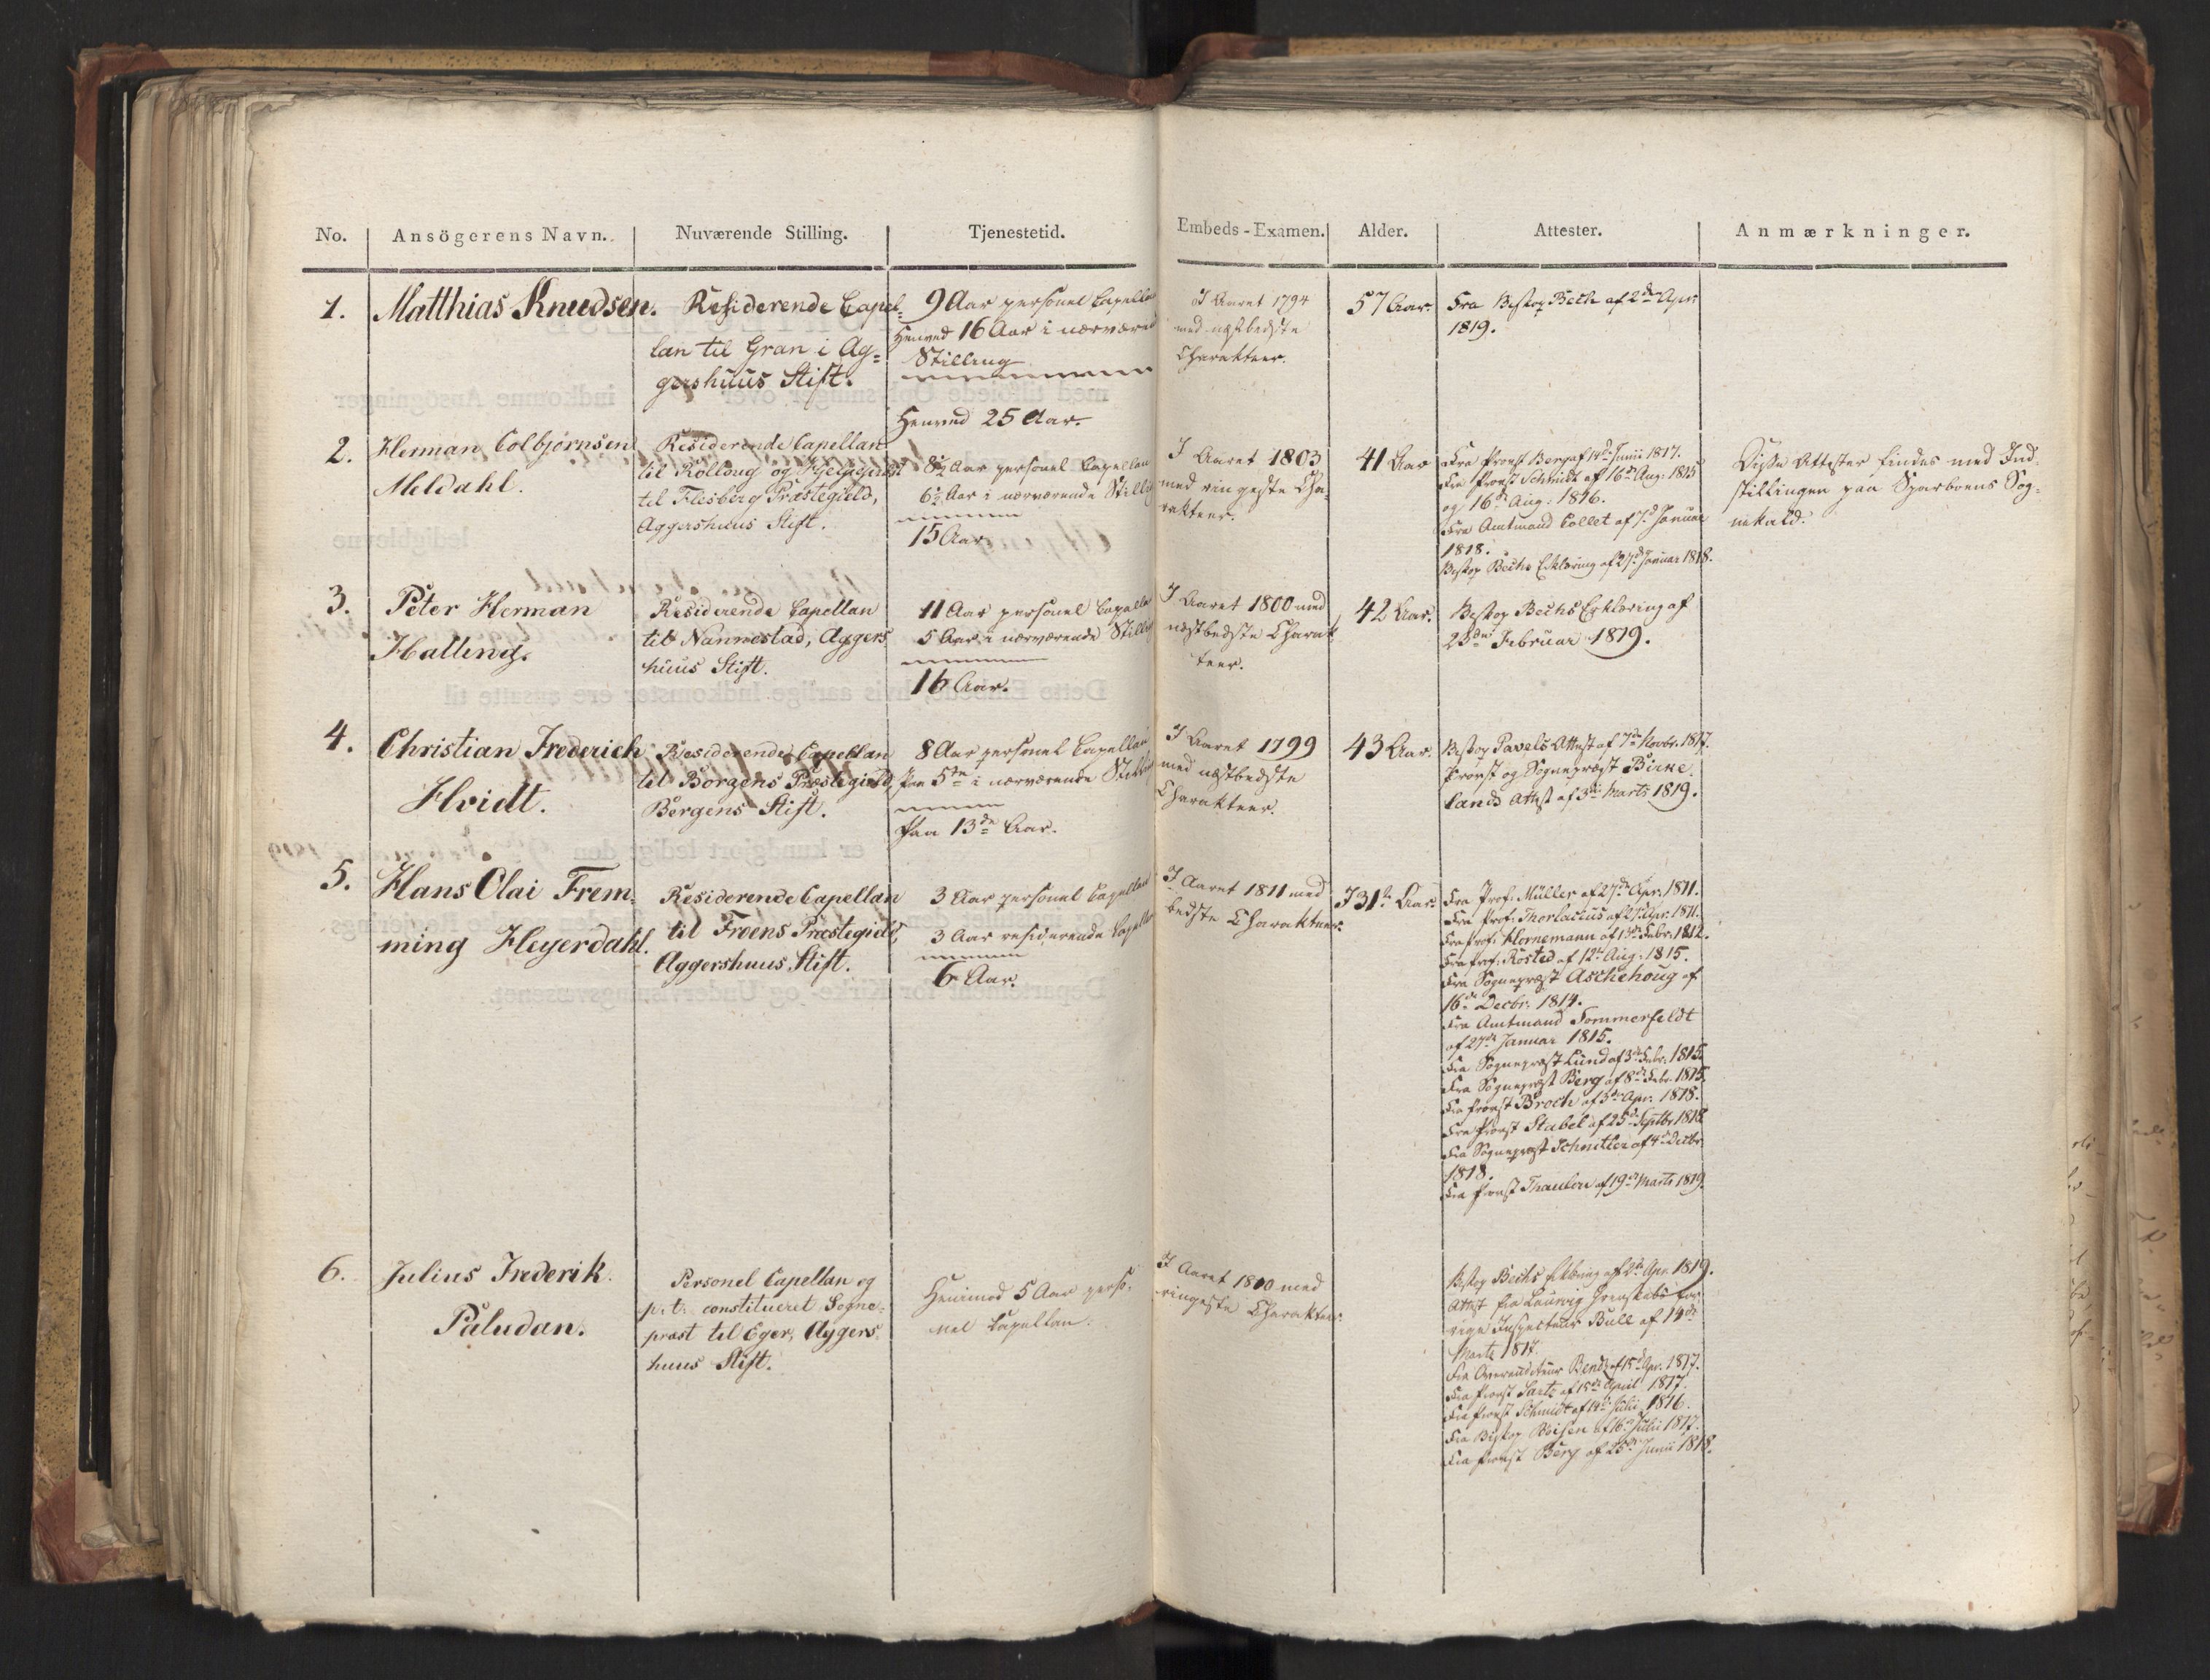 No. Ansögerens Navn. Nuværende Stilling. Tjenestetid. Embeds-Examen. Alder. Attester. Anmærkninger.
1.
Matthias Knudsen.
Residerende Capel-
lan til Gran i Ag=
gershuus Stift.
9 Aar personel Capella
Henved 16 Aar i nærværend
Stilling
Henved 25 Aar.
I Aaret 1794
med næstbedste
Charakteer.
57 Aar.
Fra Biskop Bech af 2den Apr.
1819.
2.
Herman Colbjørnsen
Meldahl.
Residerende Capellan
til Rolloug og
til Flesberg Præstegield,
Aggershuus Stift.
8½ Aar personel Capellan
6½ Aar i nærværende Stilling
15 Aar
I Aaret 1803
med ringeste Cha-
rakteer.
41 Aar
Fra Provst Berg af 14d Junii 1817.
Fra Provst Schmidt af 16de Aug: 1815
og 16de Aug: 1816.
Fra Amtmand Collet af 7d Januar
1818.
Biskop Bechs Erklæring af 27d Januar 1818.
Disse Attester findes med Ind-
stillingen paa Sparboens Sog-
nekald.
3.
Peter Herman
Halling.
Residerende Capellan
til Nannestad, Aggers
huus Stift.
11 Aar personel Capella
5 Aar i nærværende Stilling
16 Aar.
I Aaret 1800 med
næstbedste Charak
teer.
42 Aar.
Biskop Bechs Erklæring af
23de Februar 1819.
4.
Christian Frederich
Hvidt.
Residerende Capellan
til Borgens Præstegield,
Bergens Stift.
8 Aar personel Capellan
Paa 5te i nærværende Stilling
Paa 13de Aar.
I Aaret 1799
med næstbedste
Charakteer.
43 Aar.
Biskop Pavels Attest af 7de Novbr. 1817.
Provst og Sognepræst Birke-
lands Attest af 3de Marts 1819.
5.
Hans Olai Frem-
ming Heyerdahl.
Residerende Capellan
til Froens Præstegield,
Aggershuus Stift.
3 Aar personel Capellan
3 Aar residerende Capellan
6 Aar.
I Aaret 1811 med
bedste Charakteer.
I 31te Aar.
Fra Prof: Müller af 27de Apr: 1811.
Fra Prof: Thorlacius af 27 Apr: 1811.
Fra Prof: Hornemann af 13de Febr: 1812.
Fra Prof: Rosted af 12te Aug: 1815.
Fra Sognepræst Aschehoug af
16de Decbr: 1814.
Fra Amtmand Sommerfeldt
af 27de Januar 1815.
Fra Sognepræst Lund af 3de Febr: 1815.
Fra Sognepræst Berg af 8de Febr. 1815.
Fra Provst Broch af 3de Apr. 1818.
Fra Provst Stabel af 25de Septbr 1818
Fra Sognepræst Schnitler af 4de Decbr
1818.
Fra Provst Thaulow af 19de Marts 1819.
6.
Julius Frederik
Paludan.
Personel Capellan og
p: t: constitueret Sogne-
præst til Eger, Aggers
huus Stift.
Henimod 5 Aar perso-
nel Capellan.
I Aaret 1800 med
ringeste Charakteer.
Biskop Bechs Erklæring af 2de Apr. 1819.
Attest fra Laurvig Grevskabs for
rige Inspecteur Bull af 14de
Marts 1817.
Fra Overauditeur Bendz af 15d Apr. 1817.
Fra Provst Sartz af 15de April 1817.
Fra Provst Schmidt af 14de Julii 1816.
Fra Biskop Boisen af 16de Julii 1817.
Fra Provst Berg af 25de Junii 1818.